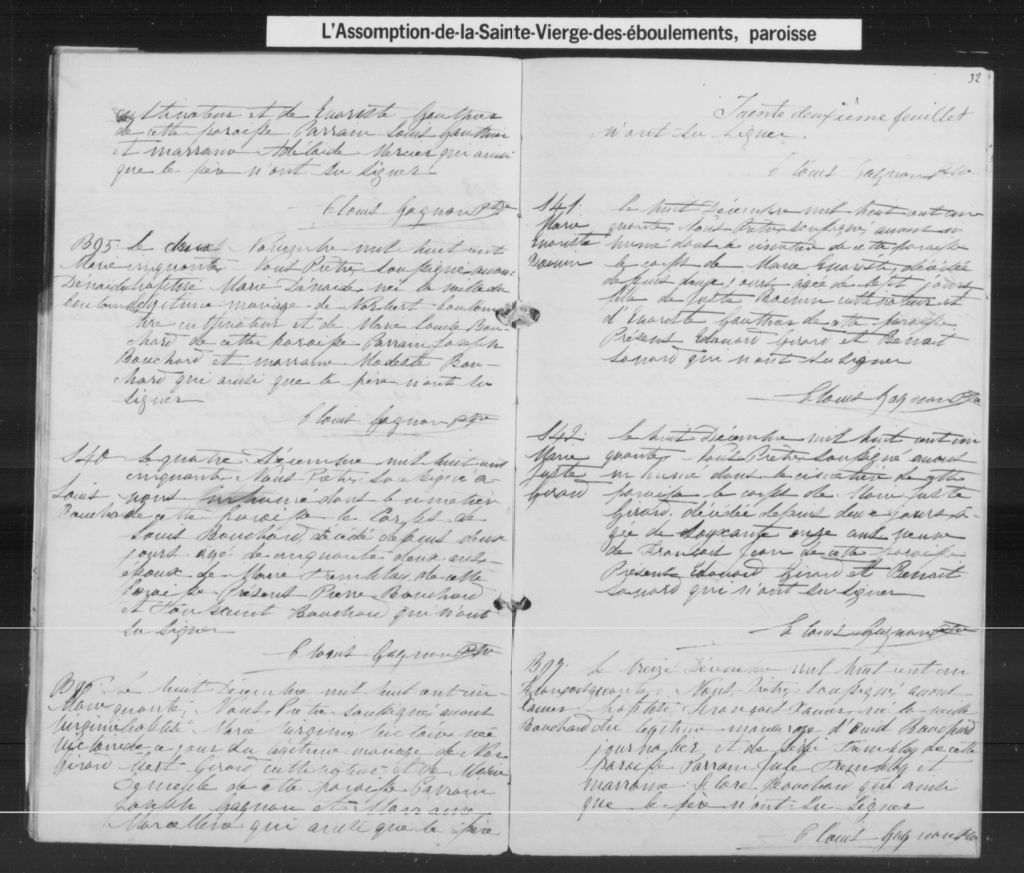 L'Assomption-de-la-Sainte-Vierge-des-éboulements, paroisse
cultivateur et de Evariste Gauthier
de cette paroisse Parrain Louis Gauthier
et marraine Adélaide Mercier qui ainsi
que le père n'ont su signer
Clovis Gagnon Ptre
B95 le Novembre mil huit cent
Marie cinquante Nous Prêtre soussigné avons
Denaide baptisé Marie Denaide née la veille du
légitime mariage de Norbert
cultivateur et de Marie Louise Bou-
chard de cette paroisse Parrain Joseph
Bouchard et marraine Modeste Bou-
chard qui ainsi que le père n'ont su
signer
Clovis Gagnon Ptre
S40 le quatre Décembre mil huit cent
cinquante Nous Prêtre soussigné a-
Louis vons inhumé dans le cimetière
Bouchard de cette paroisse le corps de
Louis Bouchard, décédé depuis deux
jours agé de cinquante deux ans
époux de Marie Tremblay de cette
paroisse Présent Pierre Bouchard
et Toussaint Bouchard qui n'ont
su signer
Clovis Gagnon Ptre
le huit Décembre mil huit cent cin-
Marie quante Nous Prêtre soussigné avons
Virginie baptisé Marie Virginie née
ce jour du légitime mariage de
Girard Girard cultivateur et de Marie
de cette paroisse Parrain
Joseph Gagnon et Marraine
Marcelline qui ainsi que le père
32
Trente deuxième feuillet
n'ont su signer
Clovis Gagnon Ptre
S41 le huit Décembre mil huit cent cin
Marie quante Nous Prêtre soussigné avons in
Evariste humé dans le cimetière de cette paroisse
le corps de Marie Evariste, décédée
depuis jours agée de sept jours
fille de Juste cultivateur et
d'Evariste Gauthier de cette paroisse
Présent Edouard Girard et Benoit
Simard qui n'ont su signer
Clovis Gagnon Ptre
S42 le huit Décembre mil huit cent cin
Marie quante Nous Prêtre soussigné avons
Juste inhumé dans le cimetière de cette
Girard paroisse le corps de Marie Juste
Girard, décédée depuis deux jours a-
gée de soixante onze ans veuve
de François Jean de cette paroisse
Présent Edouard Girard et Benoit
Simard qui n'ont su signer
Clovis Gagnon Ptre
B97 le treize Décembre mil huit cent cin
François quante Nous Prêtre soussigné avons
Xavier baptisé François Xavier né la veille
Bouchard du légitime mariage d'Ovid Bouchard
journalier et de Tremblay de cette
paroisse Parrain Jule Tremblay et
marraine Flore Bouchard qui ainsi
que le père n'ont su signer
Clovis Gagnon Ptre